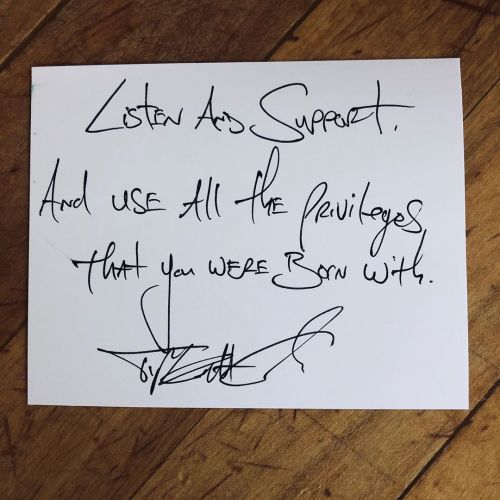 Listen And Support.
And use All the Privileges
that you were Born with.